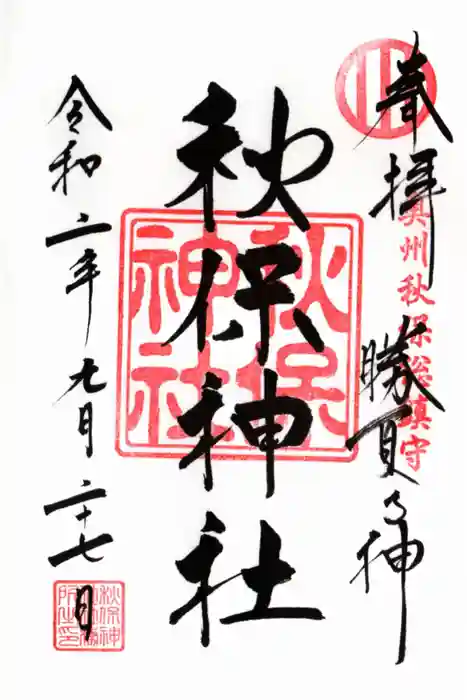 奉拝
奥州秋保総鎮守
勝負の神
秋保神社
秋保神社
令和二年九月二十七日